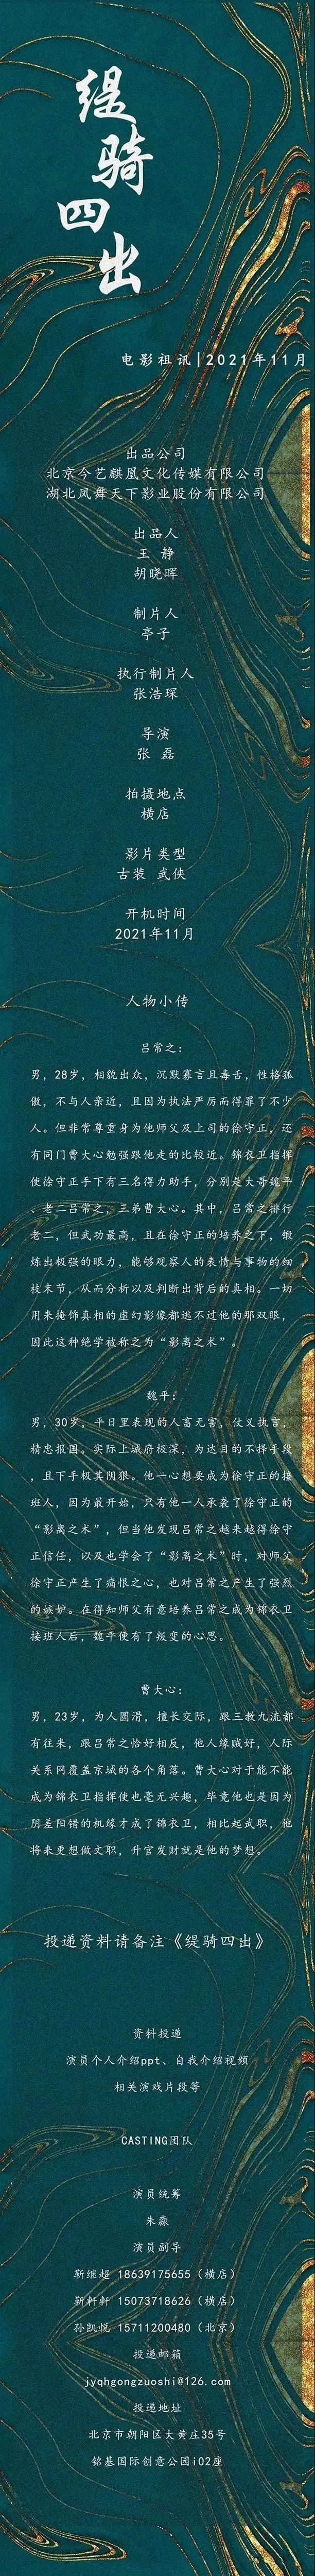 缇
骑
四
出
电影祖讯|2021年11月
出品公司
北京今艺麒凰文化传媒有限公司
湖北凤舞天下影业股份有限公司
出品人
王 静
胡晓晖
制片人
亭子
执行制片人
张浩琛
导演
张 磊
拍摄地点
横店
影片类型
古装 武侠
开机时间
2021年11月
人物小传
吕常之:
男，28岁，相貌出众，沉默寡言且毒舌，性格孤
傲，不与人亲近，且因为执法严厉而得罪了不少
人。但非常尊重身为他师父及上司的徐守正，还
有同门曹大心勉强跟他走的比较近。锦衣卫指挥
使徐守正手下有三名得力助手，分别是大哥魏平
、老二吕常之，三弟曹大心。其中，吕常之排行
老二，但武功最高，且在徐守正的培养之下，锻
炼出极强的眼力，能够观察人的表情与事物的细
枝末节，从而分析以及判断出背后的真相。一切
用来掩饰真相的虚幻影像都逃不过他的那双眼，
因此这种绝学被称之为“影离之术”。
魏平:
男，30岁，平日里表现的人畜无害，仗义执言，
精忠报国。实际上城府极深，为达目的不择手段
，且下手极其阴狠。他一心想要成为徐守正的接
班人，因为最开始，只有他一人承袭了徐守正的
“影离之术”，但当他发现吕常之越来越得徐守
正信任，以及也学会了“影离之术”时，对师父
徐守正产生了痛恨之心，也对吕常之产生了强烈
的嫉妒。在得知师父有意培养吕常之成为锦衣卫
接班人后，魏平便有了叛变的心思。
曹大心:
男，23岁，为人圆滑，擅长交际，跟三教九流都
有往来，跟吕常之恰好相反，他人缘贼好，人际
关系网覆盖京城的各个角落。曹大心对于能不能
成为锦衣卫指挥使也毫无兴趣，毕竟他也是因为
阴差阳错的机缘才成了锦衣卫，相比起武职，他
将来更想做文职，升官发财就是他的梦想。
投递资料请备注《缇骑四出》
资料投递
演员个人介绍ppt、自我介绍视频
相关演戏片段等
CASTING团队
演员统筹
朱淼
演员副导
靳继超 18639175655（横店）
靳轩轩 15073718626（横店）
孙凯悦 15711200480（北京）
投递邮箱
jyqhgongzuoshi@126.com
投递地址
北京市朝阳区大黄庄35号
铭基国际创意公园i02座